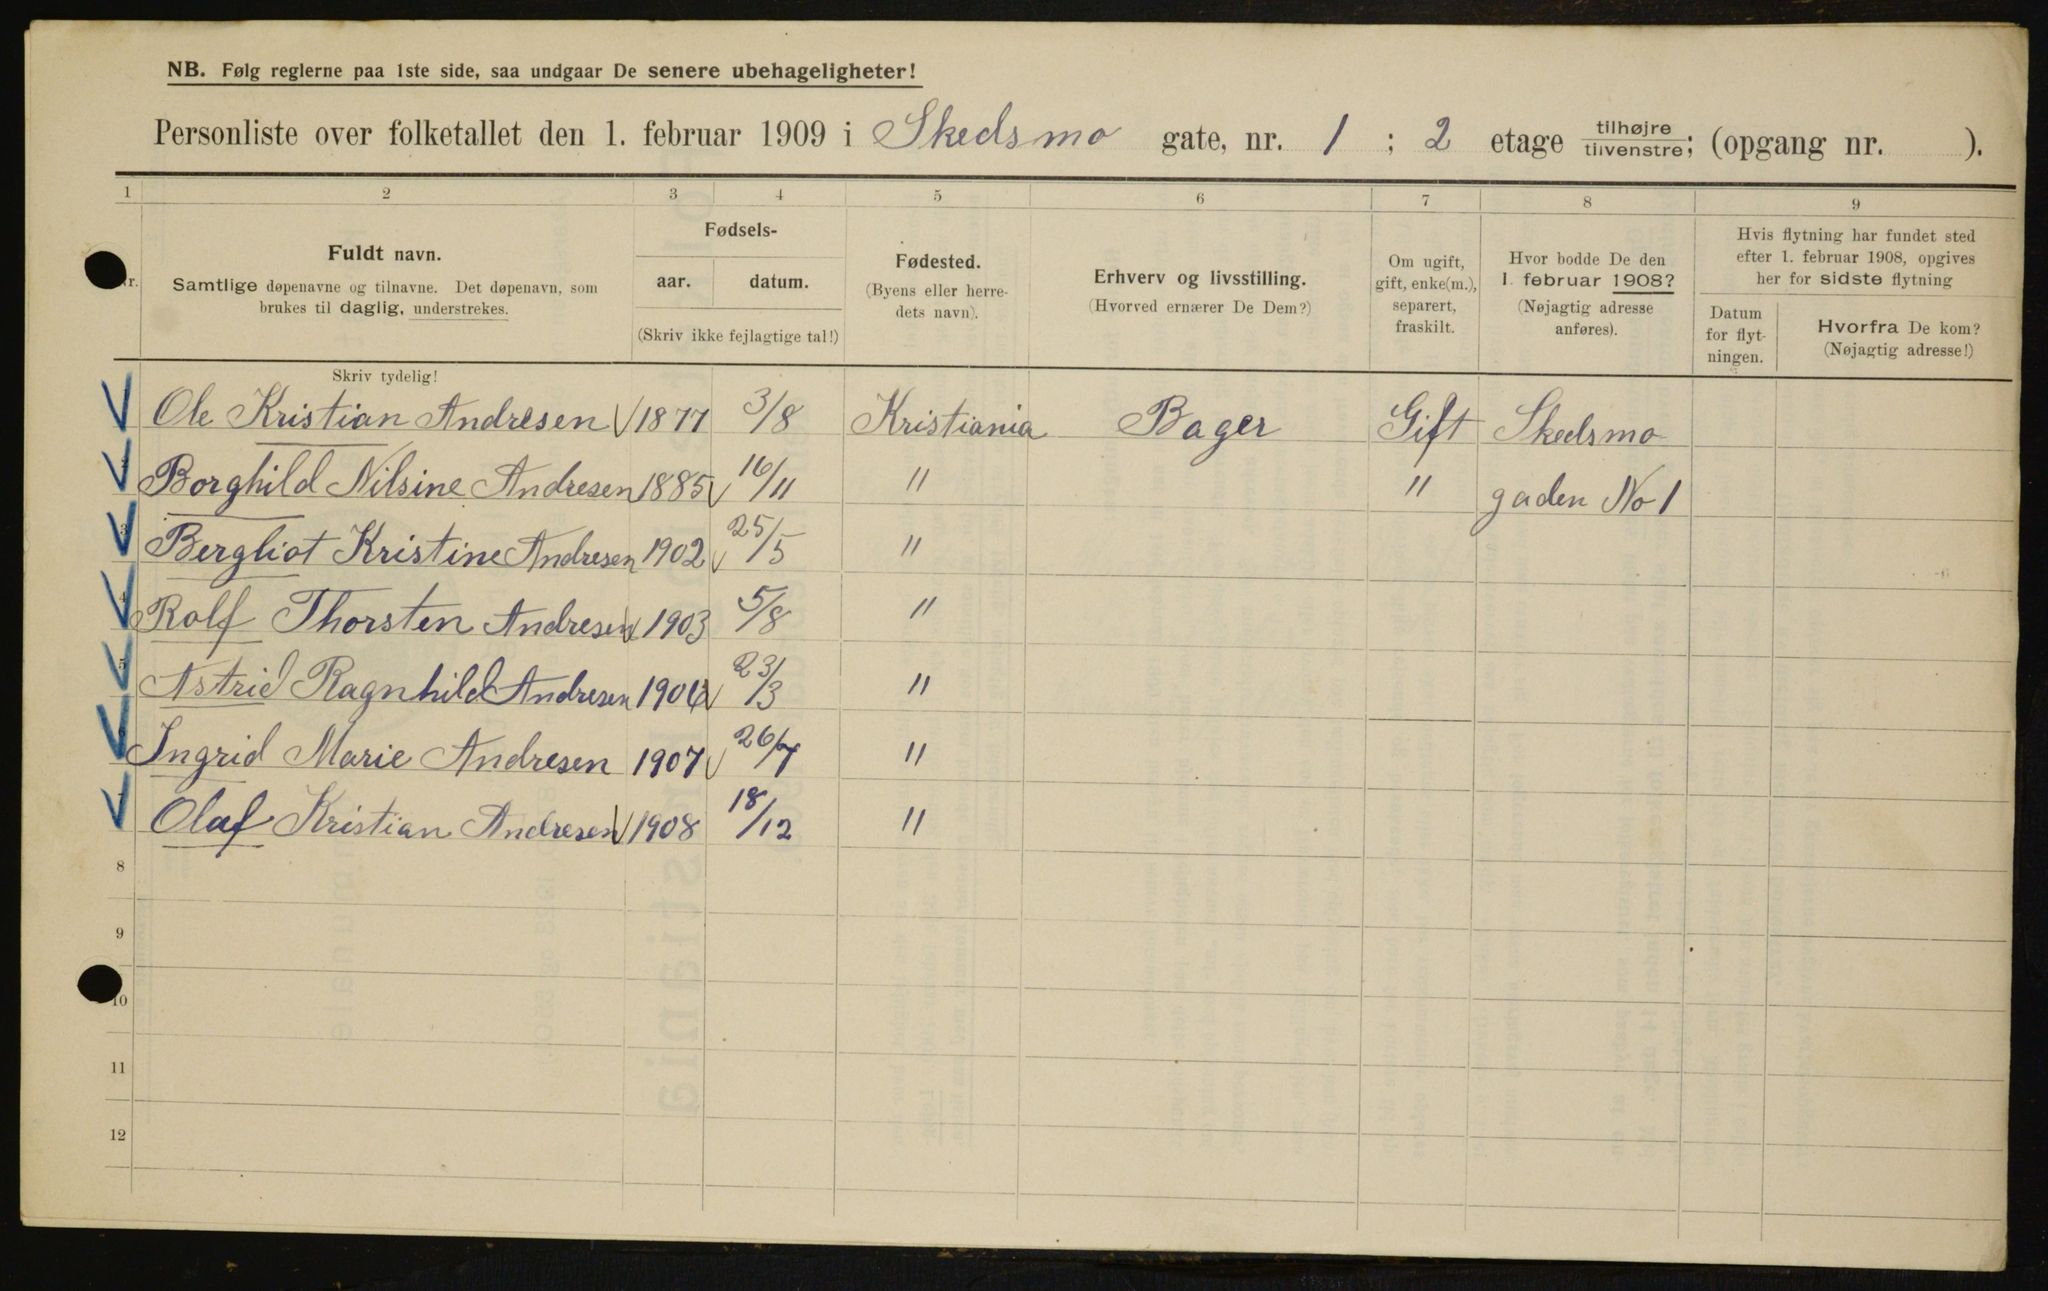 NB. Følg reglerne paa 1ste side, saa undgaar De senere ubehageligheter!
Personliste over folketallet den 1. februar 1909 i Skedsmo gate, nr. 1 ; 2 etage tilhøjre tilvenstre; (opgang nr. ).
1 2 3 4 5 6 7 8 9
Nr.
Fuldt navn.
Samtlige døpenavne og tilnavne. Det døpenavn, som
brukes til daglig, understrekes.
Fødsels-
aar. datum.
(Skriv ikke fejlagtige tal!)
Fødested.
(Byens eller herre-
dets navn).
Erhverv og livsstilling.
(Hvorved ernærer De Dem?)
Om ugift,
gift, enke(m.),
separert,
fraskilt.
Hvor bodde De den
1. februar 1908?
(Nøjagtig adresse
anføres).
Hvis flytning har fundet sted
efter 1. februar 1908, opgives
her for sidste flytning
Datum
for flyt-
ningen.
Hvorfra De kom?
(Nøjagtig adresse!)
Skriv tydelig!
Ole Kristian Andresen 1877 3/8 Kristiania Bager Gift Skedsmo
Borghild Nilsine Andresen 1885 16/11 " " gaden No 1
3 Bergliot Kristine Andresen 1902 25/5 "
4 Rolf Thorsten Andresen 1903 5/8 "
5 Astrid Ragnhild Andresen 1906 23/3 "
Ingrid Marie Andresen 1907 26/7 "
7 Olaf Kristian Andresen 1908 18/12 "
8
9
10
11
12